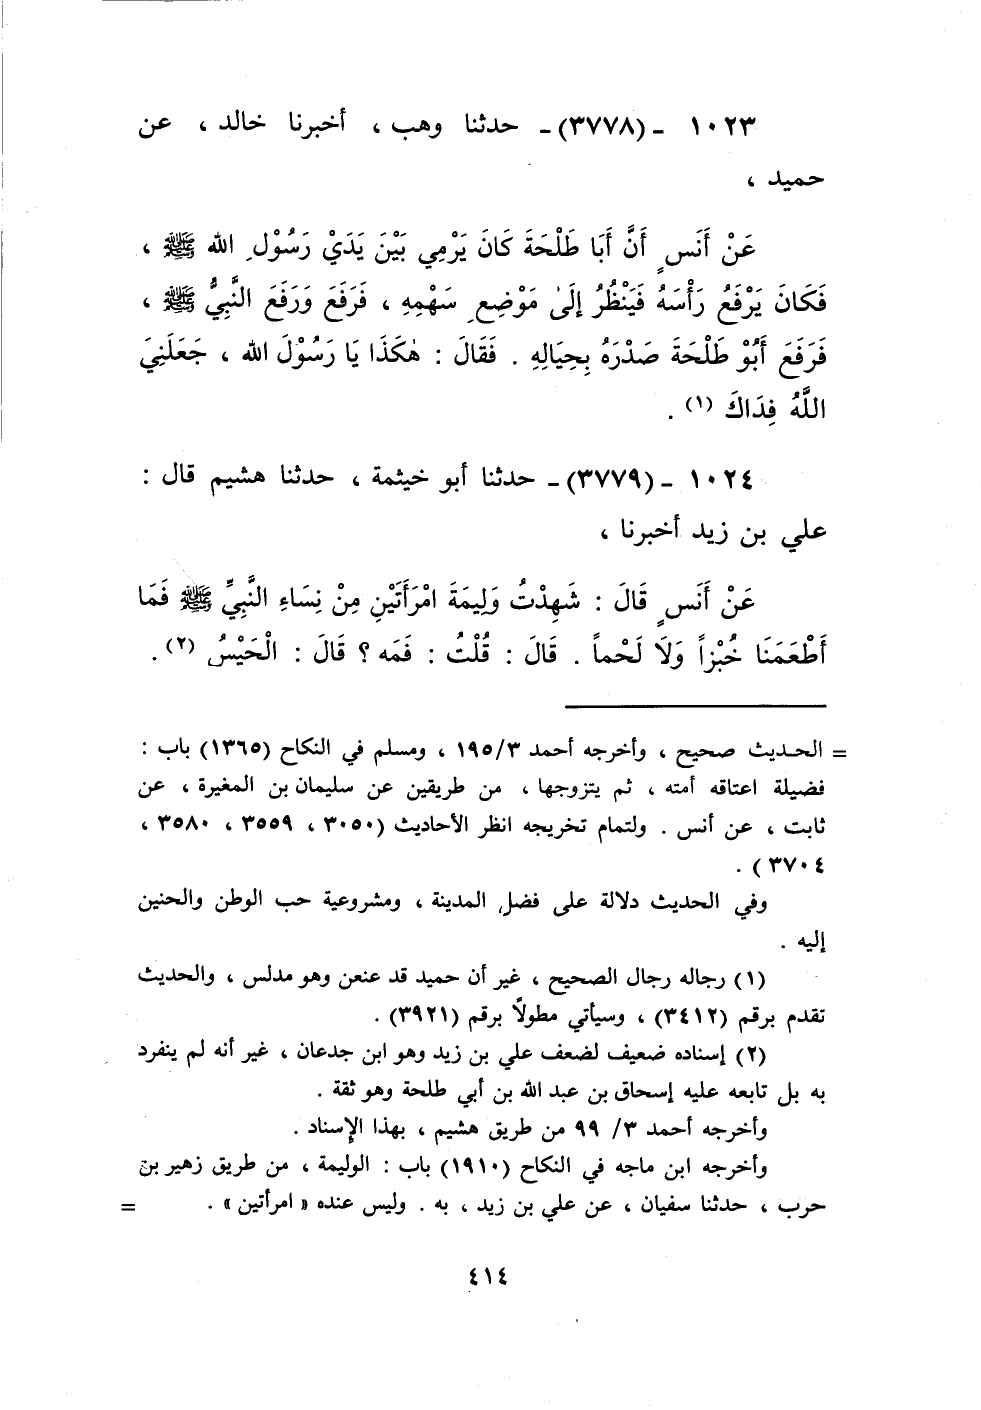 ١٠٢٣ - (٣٧٧٨) - حدثنا وهب ، أخبرنا خالد ، عن
حميد ،
عَنْ أَنَسٍ أَنَّ أَبَا طَلْحَةَ كَانَ يَرْمِي بَيْنَ يَدَيْ رَسُوْلِ الله ﷺ ،
فَكَانَ يَرْفَعُ رَأْسَهُ فَيَنْظُرُ إِلَىٰ مَوْضِعِ سَهْمِهِ ، فَرَفَعَ وَرَفَعَ النَّبِيُّ ﷺ ،
فَرَفَعَ أَبُوْ طَلْحَةَ صَدْرَهُ بِحِيَالِهِ . فَقَالَ : هٰكَذَا يَا رَسُوْلَ الله ، جَعَلَنِيَ
اللَّهُ فِدَاكَ (١) .
١٠٢٤ - (٣٧٧٩) - حدثنا أبو خيثمة ، حدثنا هشيم قال :
علي بن زيد أخبرنا ،
عَنْ أَنَسٍ قَالَ : شَهِدْتُ وَلِيمَةَ امْرَأَتَيْنِ مِنْ نِسَاءِ النَّبِيِّ ﷺ فَمَا
أَطْعَمَنَا خُبْزاً وَلَا لَحْماً . قَالَ : قُلْتُ : فَمَه ؟ قَالَ : الْحَيْسُ (٢) .
= الحديث صحيح ، وأخرجه أحمد ١٩٥/٣ ، ومسلم في النكاح (١٣٦٥) باب :
فضيلة اعتاقه أمته ، ثم يتزوجها ، من طريقين عن سليمان بن المغيرة ، عن
ثابت ، عن أنس . ولتمام تخريجه انظر الأحاديث (٣٠٥٠ ، ٣٥٥٩ ، ٣٥٨٠ ،
٣٧٠٤) .
وفي الحديث دلالة على فضل المدينة ، ومشروعية حب الوطن والحنين
إليه .
(١) رجاله رجال الصحيح ، غير أن حميد قد عنعن وهو مدلس ، والحديث
تقدم برقم (٣٤١٢) ، وسيأتي مطولاً برقم (٣٩٢١) .
(٢) إسناده ضعيف لضعف علي بن زيد وهو ابن جدعان ، غير أنه لم ينفرد
به بل تابعه عليه إسحاق بن عبد الله بن أبي طلحة وهو ثقة .
وأخرجه أحمد ٣/ ٩٩ من طريق هشيم ، بهذا الإسناد .
وأخرجه ابن ماجه في النكاح (١٩١٠) باب : الوليمة ، من طريق زهير بن
حرب ، حدثنا سفيان ، عن علي بن زيد ، به . وليس عنده « امرأتين » . =
٤١٤